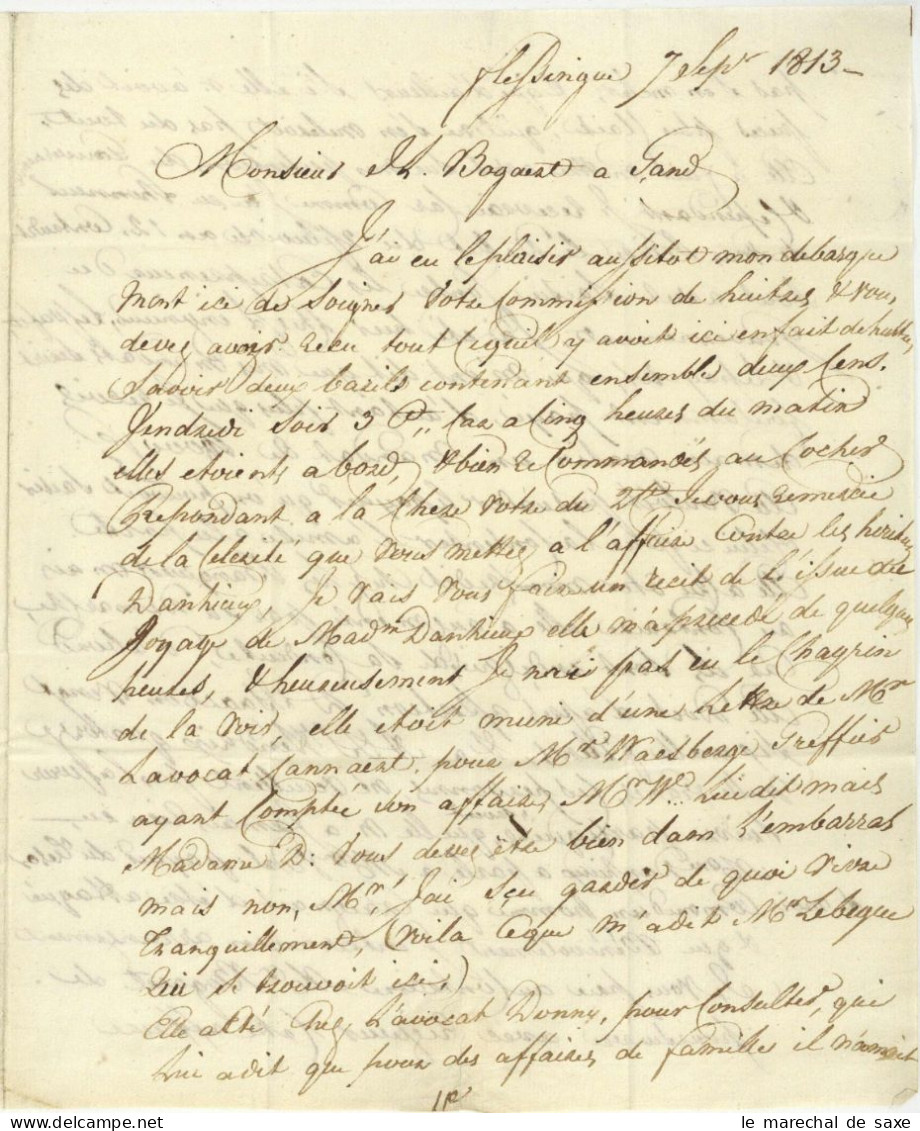 flessingue 7 Sepr 1813 -
Monsieur Bogaert a Gand
J'ai eu le plaisir aussitot mon debarque
ment ici de soigner votre Commission de huitres & vous
devez avoir recu tout cequil y avoit ici en fait de
Savoir deux barils contenant ensemble deux Cens.
Vendredi soir 3 Ct,, car a Cinq heures du matin
elles etoients a bord, & bien recommandés au Cocher
Repondant a la Chere votre du 2Ct Je vous remercie
de la Celerité que vous mettez a l'affaire Contre les
Danhieux, Je vais vous faire un recit de l'issue du
Voyage de Madme Danhieux elle m'a precedé de quelques
heures, & heureusement Je n'ai pas eu le Chagrin
de la voir, elle etoit muni d'une Lettre de Mr
Lavocat Cannaert pour Mr Waesberge Greffier
ayant Comptée son affaire, Mr W.. Lui dit mais
Madame D: vous devez etre bien dans l'embarras
mais non, Mr, J'ai sçu garder de quoi vivre
tranquillement, (voila ceque m'a dit Mr Lebegue
qui se trouvoit ici)
Elle a été Chez L'avocat Donny, pour Consulter, qui
Lui a dit que pour des affaires de famille il
le marechal de saxe